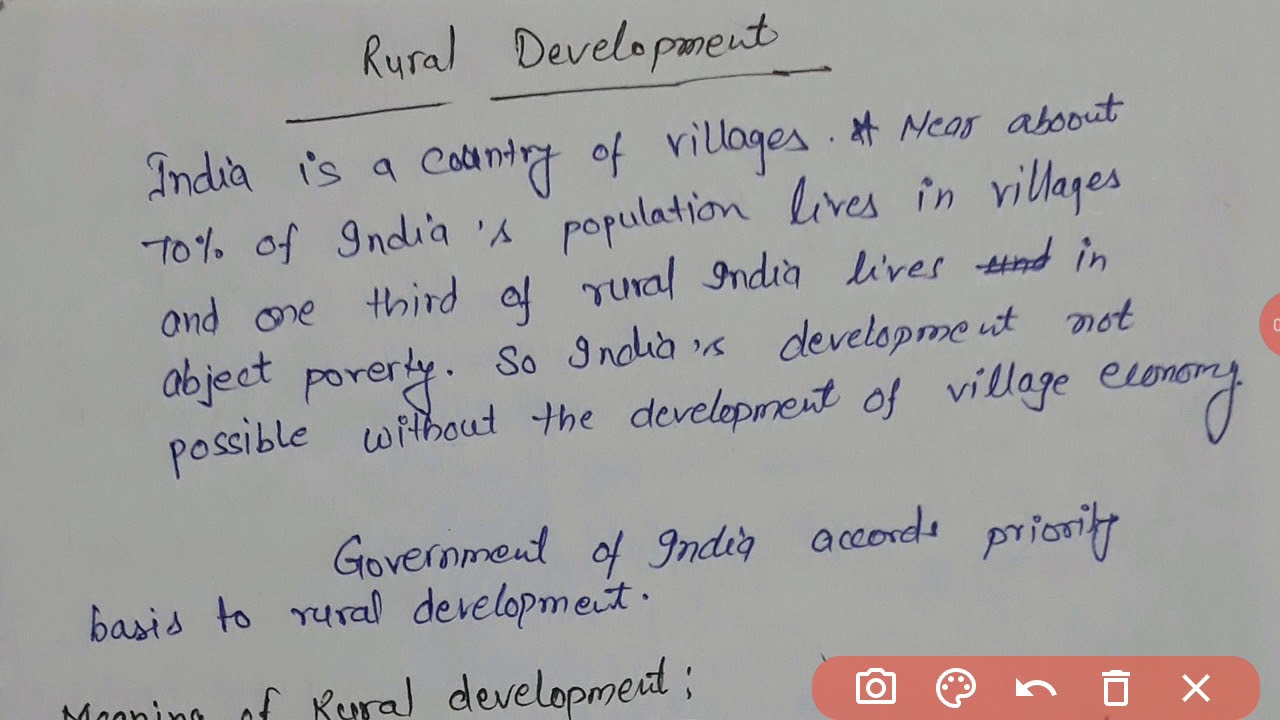 Rural Development
India is a country of villages. Near aboout
70% of India's population lives in villages
and one third of rural India lives in
abject poverty. So India's development not
possible without the development of village economy.
Government of India accords priority
basis to rural development.
Meaning of Rural development;